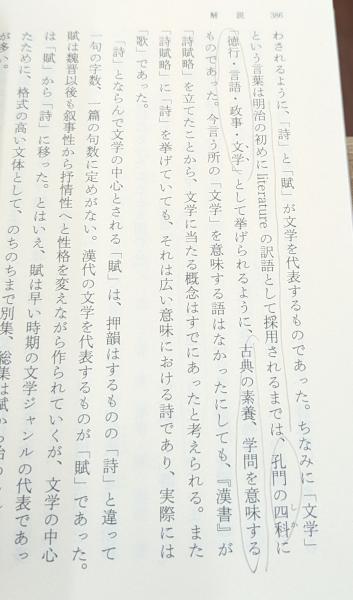 解説
386
わされるように、「詩」と「賦」が文学を代表するものであった。ちなみに「文学」
という言葉は明治の初めに literature の訳語として採用されるまでは、孔門の四科に
しか
「徳行・言語・政事・文学」として挙げられるように、古典の素養、学問を意味する
ものであった。今言う所の「文学」を意味する語はなかったにしても、『漢書』が
「詩賦略」を立てたことから、文学に当たる概念はすでにあったと考えられる。また
「詩賦略」に「詩」を挙げていても、それは広い意味における詩であり、実際には
「歌」であった。
「詩」とならんで文学の中心とされる「賦」は、押韻はするものの「詩」と違って
一句の字数、一篇の句数に定めがない。漢代の文学を代表するものが「賦」であった。
賦は魏晋以後も叙事性から抒情性へと性格を変えながら作られていくが、文学の中心
は「賦」から「詩」に移った。とはいえ、賦は早い時期の文学ジャンルの代表であっ
たために、格式の高い文体として、のちのちまで別集、総集は賦から
が多い。